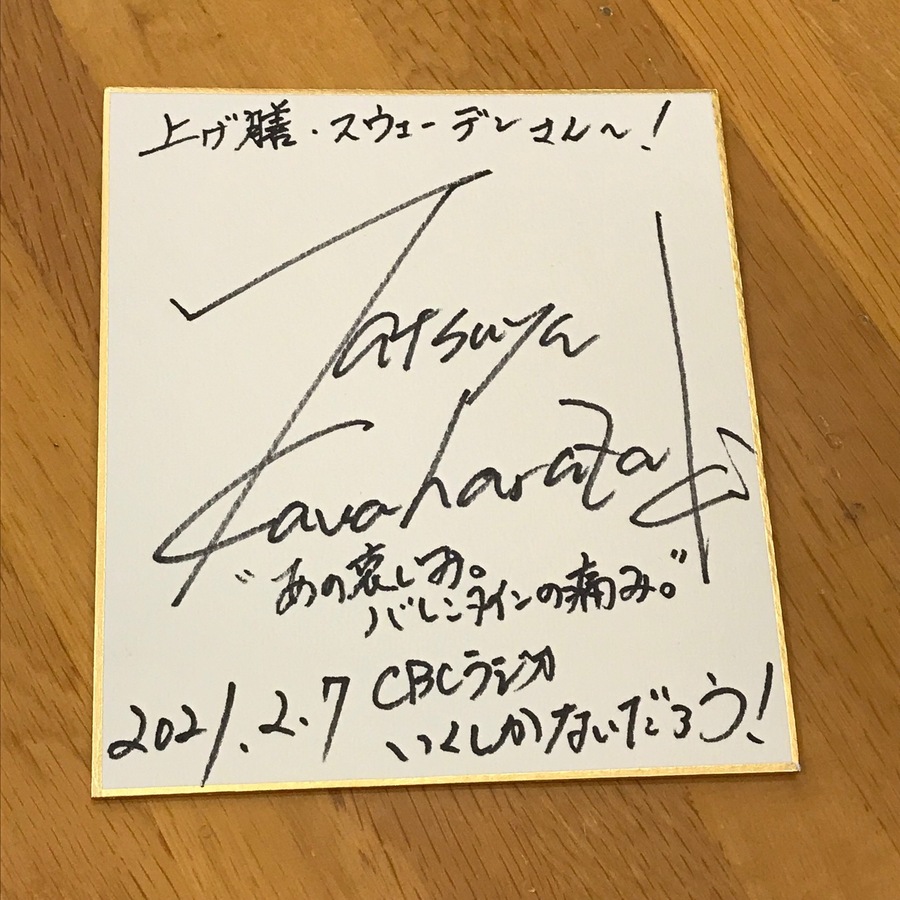 上げ膳・スウェーデンさん〜!
Tatsuya
Kawaharazaki
"あの哀しみ。
バレンタインの痛み。"
2021.2.7 CBCラジオ
いくしかないだろう!